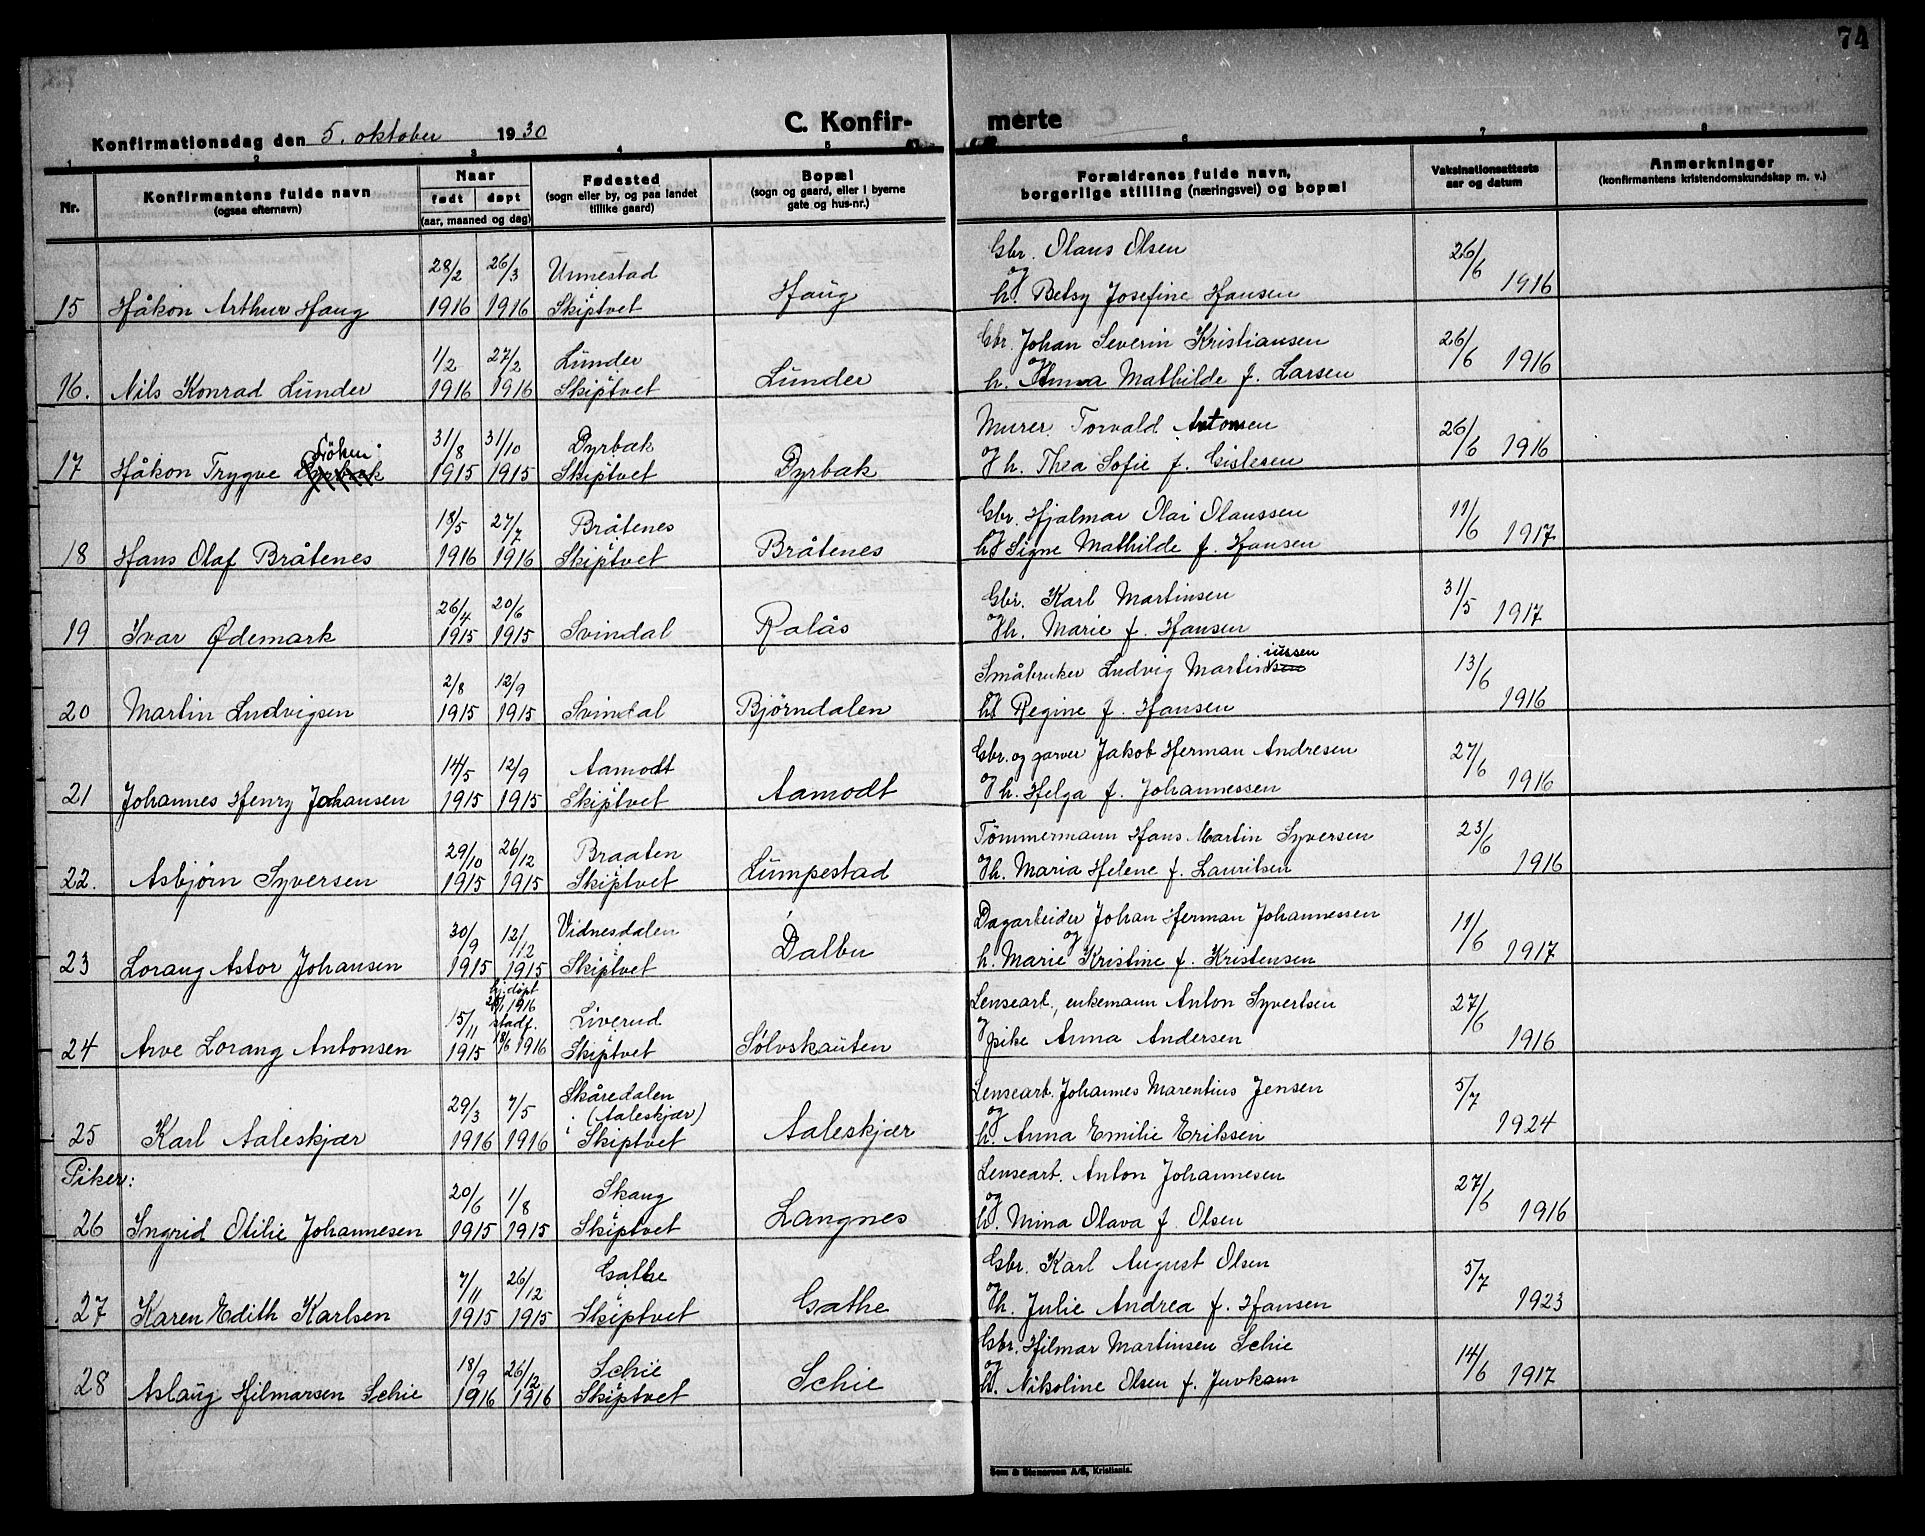 74
Konfirmationsdag den 5. oktober 1930
C. Konfir-
merte
1 2 3 4 5 6 7 8
Nr.
Konfirmantens fulde navn
(ogsaa efternavn)
Naar
født døpt
(aar, maaned og dag)
Fødested
(sogn eller by, og paa landet
tillike gaard)
Bopæl
(sogn og gaard, eller i byerne
gate og hus-nr.)
Forældrenes fulde navn,
borgerlige stilling (næringsvei) og bopæl
Vaksinationsattests
aar og datum
Anmerkninger
(konfirmantens kristendomskundskap m. v.)
28/2 26/3 Unnestad Gbr. Olaus Olsen 26/6
15 Håkon Arthur Haug 1916 1916 Skiptvet Haug og h. Betsy Josefine Hansen 1916
1/2 27/2 Lunder Gbr. Johan Severin Kristiansen 26/6
16. Nils Konrad Lunder 1916 1916 Skiptvet Lunder og h. Anna Mathilde f. Larsen 1916
31/8 31/10 Dyrbæk Murer Torvald Antonsen 26/6
17 Håkon Trygve Dyrbæk 1915 1915 Skiptvet Dyrbak og h. Thea Sofie f. Gislesen 1916
18/5 27/7 Bråtenes Gbr. Hjalmar Olai Olaussen 11/6
18 Hans Olaf Bråtenes 1916 1916 Skiptvet Bråtenes og h. Signe Mathilde f. Hansen 1917
26/4 20/6 Gbr. Karl Martinsen 31/5
19 Ivar Ødemark 1915 1915 Svindal Ralås og h. Marie f. Hansen 1917
2/8 12/9 Småbruker Ludvig Martinsen iussen 13/6
20 Martin Ludvigsen 1915 1915 Svindal Bjørndalen og h. Regine f. Hansen 1916
14/5 12/9 Aamodt Gbr. og garver Jakob Herman Andresen 27/6
21 Johannes Henry Johansen 1915 1915 Skiptvet Aamodt og h. Helga f. Johannessen 1916
29/10 26/12 Braaten Tømmermann Hans Martin Syversen 23/6
22. Asbjørn Syversen 1915 1915 Skiptvet Lumpestad og h. Maria Helene f. Lauritsen 1916
30/9 12/12 Vidnesdalen Dagarbeider Johan Herman Johannessen 11/6
23 Lorang Astor Johansen 1915 1915 Skiptvet Dalbu og h. Marie Kristine f. Kristensen 1917
hj. døpt
1916
15/11 stadf. Liverud Lensearb., enkemann Anton Syvertsen 27/6
24 Arve Lorang Antonsen 1915 18/6 1916 Skiptvet Sølvskauten og pike Anna Andersen 1916
29/3 7/5 Skåredalen Lensearb. Johannes Marentius Jensen 5/7
(Aaleskjær)
25 Karl Aaleskjær 1916 1916 i Skiptvet Aaleskjær og h. Anna Emilie Eriksen 1924
Piker:
20/6 1/8 Skaug Lensearb. Anton Johannesen 27/6
26 Ingrid Otilie Johannesen 1915 1915 Skiptvet Langnes og h. Mina Olava f. Olsen 1916
7/11 26/12 Gathe Gbr. Karl August Olsen 5/7
27 Karen Edith Karlsen 1915 1915 Skiptvet Gathe og h. Julie Andrea f. Hansen 1923
18/9 26/12 Schie Gbr. Hilmar Martinsen Schie 14/6
28 Aslaug Hilmarsen Schie 1916 1916 Skiptvet Schie og h. Nikoline Olsen f. Juvkam 1917